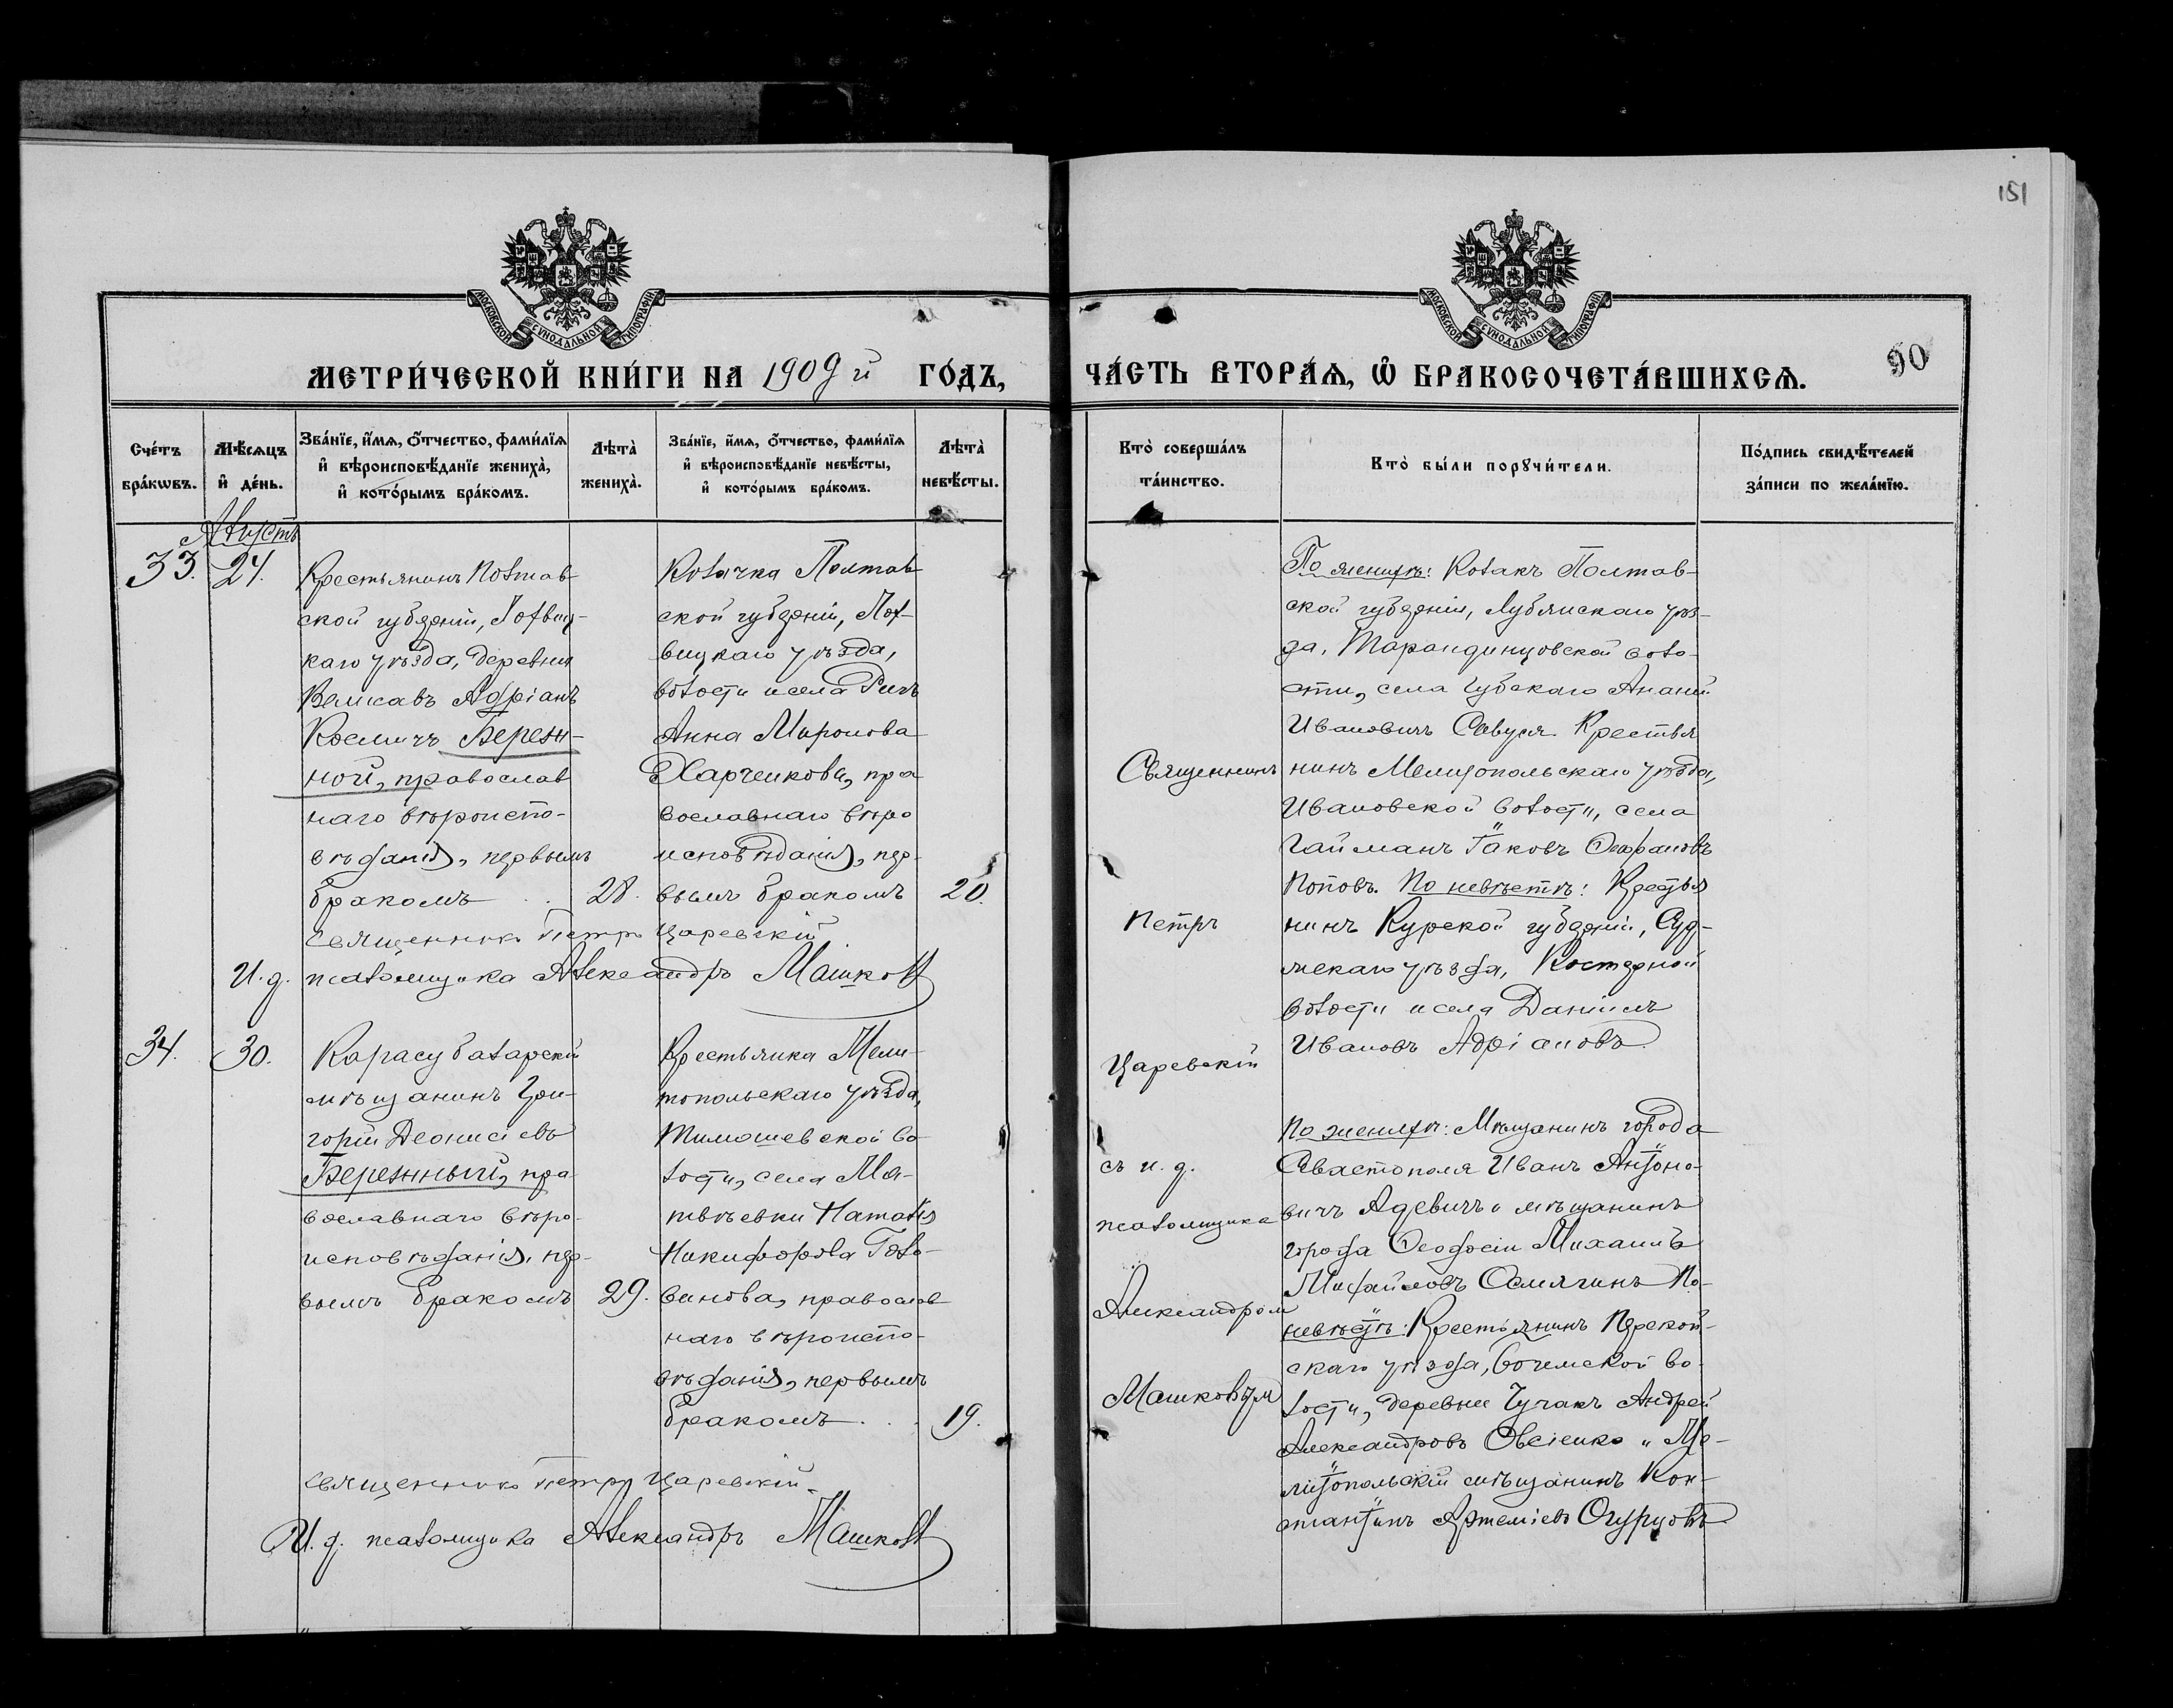 151
МОСКОВСКОЙ СѴНОДАЛЬНОЙ ТИПОГРАФІИ
МЕТРИ́ЧЕСКОЙ КНИ́ГИ НА 1909 й ГО́ДЪ,
Сче́тъ бра́кѡвъ.
Мѣ́сѧцъ и҆ де́нь.
Зва́нїе, и҆́мѧ, ѻ҆́тчество, фами́лїѧ
и҆ вѣроисповѣ́данїе жениха̀,
и҆ кото́рымъ бра́комъ.
Лѣта̀ жениха̀.
Зва́нїе, и҆́мѧ, ѻ҆́тчество, фами́лїѧ
и҆ вѣроисповѣ́данїе невѣ́сты,
и҆ кото́рымъ бра́комъ.
Лѣта̀ невѣ́сты.
Августъ
33.
24.
Крестьянинъ Полтав-
ской губерніи, Лохвиц-
каго уѣзда, деревни
Адріанъ
Космичъ Береж-
ной, православ
наго вѣроиспо-
вѣданія, первымъ
бракомъ
28.
Козачка Полтав
ской губерніи, Лох-
вицкаго уѣзда,
волости и села
Анна Миронова
Харченкова, пра
вославнаго вѣро
исповѣданія, пер-
вымъ бракомъ
20.
Священникъ Петръ Царевскій
И. д. псаломщика Александръ Машковъ
34.
30.
Карасубазарскій
мѣщанинъ Гри-
горій Деонисіевъ
Бережный, пра-
вославнаго вѣро-
исповѣданія, пер-
вымъ бракомъ
29.
Крестьянка Мели-
топольскаго уѣзда,
Тимошевской во-
лости, села Ма-
твѣевки Наталія
Никифорова Голо-
винова, православ
наго вѣроиспо-
вѣданія, первымъ
бракомъ . . .
19.
Священникъ Петръ Царевскій.
И. д. псаломщика Александръ Машковъ
МОСКОВСКОЙ СѴНОДАЛЬНОЙ ТИПОГРАФІИ
ЧА́СТЬ ВТОРА́Ѧ, Ѽ БРАКОСОЧЕТА́ВШИХСѦ.
90
Кто̀ соверша́лъ та́инство.
Кто̀ бы́ли порꙋчи́тели.
По́дпись свидѣ́телей за́писи по жела́нїю.
Священникъ
Петръ
Царевскій
съ и. д.
псаломщика
Александром
Машковым
По женихѣ: Козакъ Полтав-
ской губерніи, Лубянскаго уѣз-
да, Тарандинцовской воло-
сти, села Губскаго Ананій
Ивановичъ Савуся Крестья
нинъ Мелитопольскаго уѣзда,
Ивановской волости, села
Гайманъ Іаковъ
Поповъ. По невѣстѣ: Крестья
нинъ Курской губерніи, Суд-
жскаго уѣзда, Костерной
волости и села Даніилъ
Ивановъ Адріановъ
По женихѣ: Мѣщанинъ города
Севастополя Иванъ Антоно-
вичъ Адевичъ и мѣщанинъ
города Ѳеодосіи Михаилъ
Михайловъ Осмягинъ По
невѣстѣ: Крестьянинъ Перекоп-
скаго уѣзда, во-
лости, деревни Чучакъ Андрей
Александровъ Овсіенко и Ме-
литопольскій мѣщанинъ Кон-
стантинъ Артеміевъ Огурцовъ